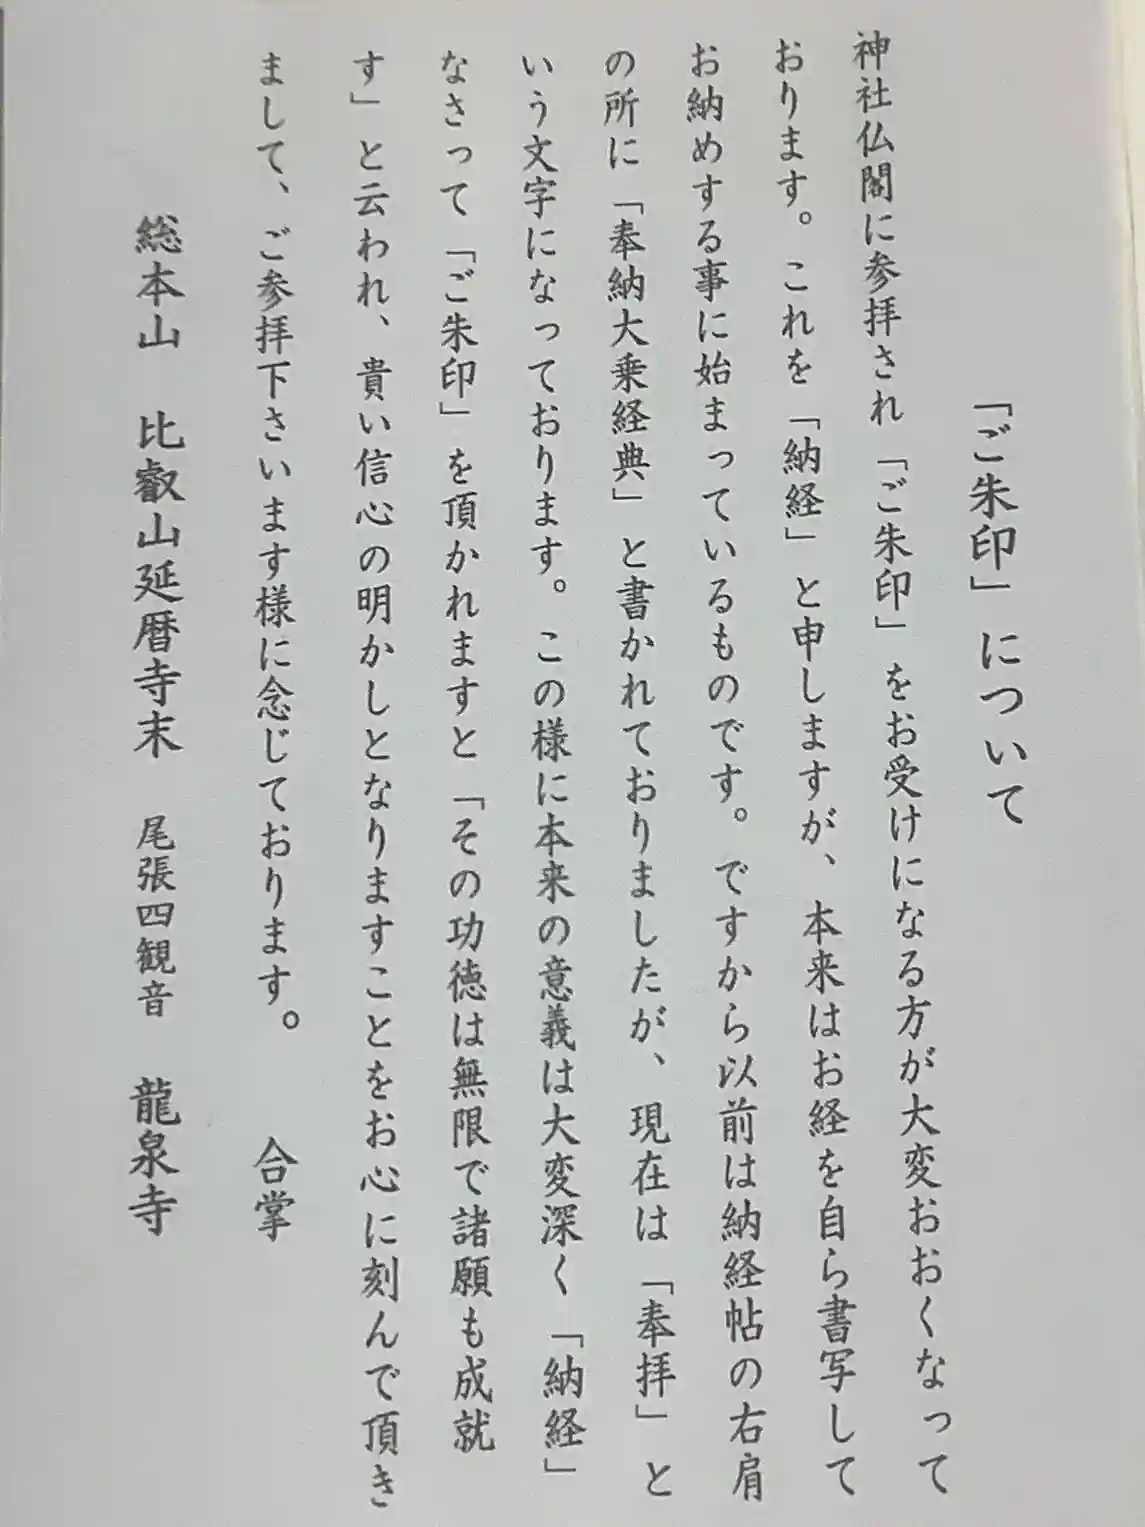 「ご朱印」について
神社仏閣に参拝され「ご朱印」をお受けになる方が大変おおくなって
おります。これを「納経」と申しますが、本来はお経を自ら書写して
お納めする事に始まっているものです。ですから以前は納経帖の右肩
の所に「奉納大乗経典」と書かれておりましたが、現在は「奉拝」と
いう文字になっております。この様に本来の意義は大変深く「納経」
なさって「ご朱印」を頂かれますと「その功徳は無限で諸願も成就
す」と云われ、貴い信心の明かしとなりますことをお心に刻んで頂き
まして、ご参拝下さいます様に念じております。 合掌
総本山 比叡山延暦寺末 尾張四観音 龍泉寺